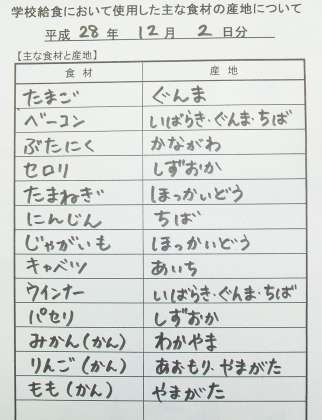 学校給食において使用した主な食材の産地について
平成 28 年 12 月 2 日分
【主な食材と産地】
食材 産地
たまご ぐんま
ベーコン いばらき・ぐんま・ちば
ぶたにく かながわ
セロリ しずおか
たまねぎ ほっかいどう
にんじん ちば
じゃがいも ほっかいどう
キャベツ あいち
ウインナー いばらき・ぐんま・ちば
パセリ しずおか
みかん(かん) わかやま
りんご(かん) あおもり・やまがた
もも(かん) やまがた